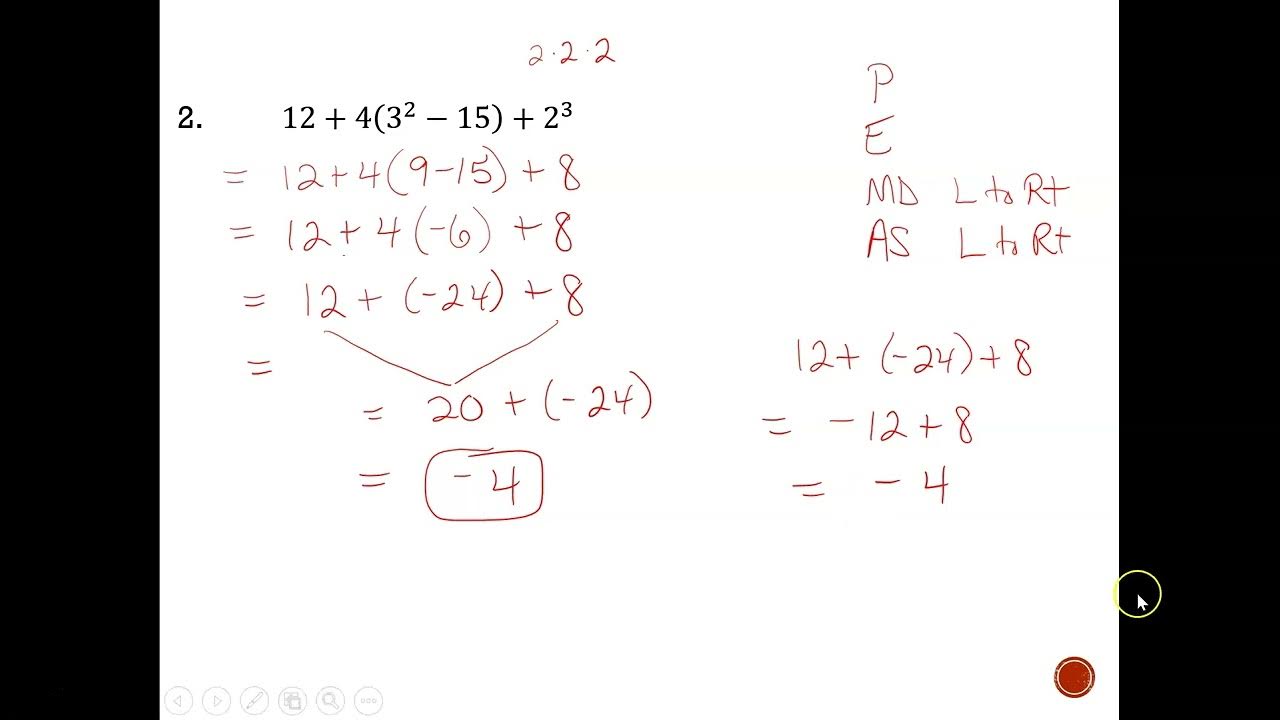 2·2·2
2. 12 + 4(3² − 15) + 2³
= 12+4(9-15) + 8
= 12+4(-6) + 8
= 12+ (-24) + 8
=
= 20 + (-24)
= -4
P
E
MD L to Rt
AS L to Rt
12+ (-24) + 8
= -12 + 8
= -4